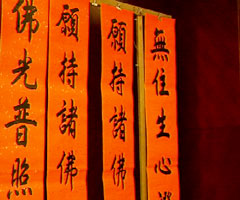 無住生心
願持諸佛
願持諸佛
佛光普照